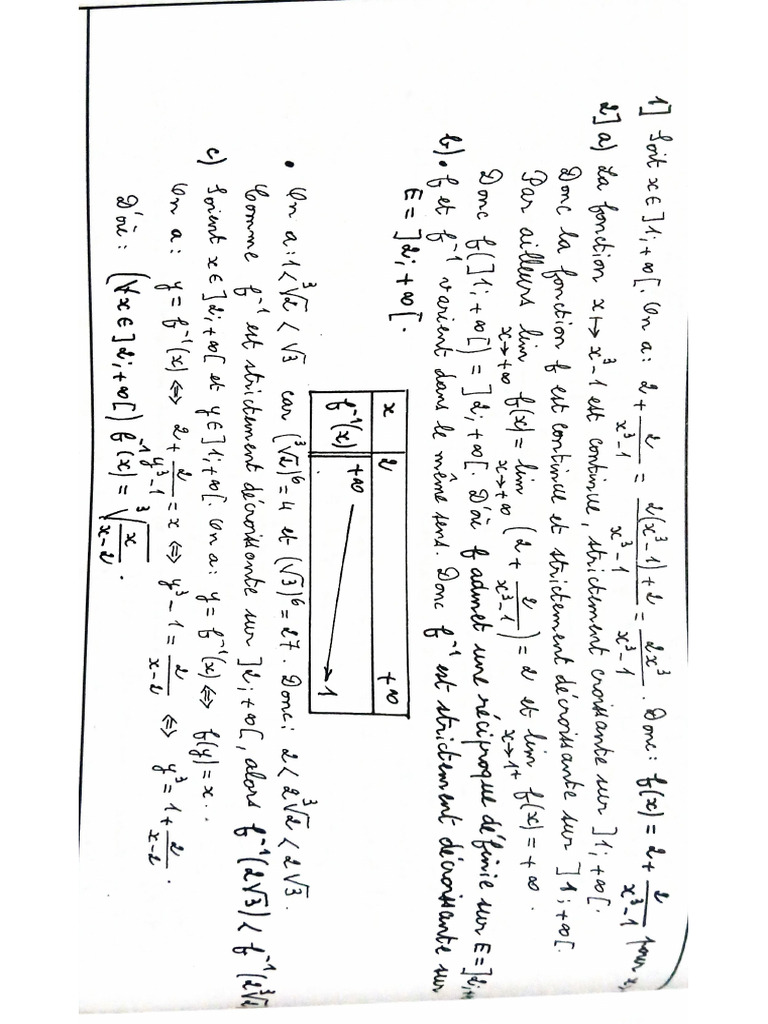 1] Soit x ∈ ]1; +∞[. On a : 2 + 2/(x³-1) = (2(x³-1)+2)/(x³-1) = 2x³/(x³-1). Donc : f(x) = 2 + 2/(x³-1) pour x
2] a) La fonction x ↦ x³-1 est continue, strictement croissante sur ]1; +∞[.
Donc la fonction f est continue et strictement décroissante sur ]1; +∞[.
Par ailleurs lim x→+∞ f(x) = lim x→+∞ (2 + 2/(x³-1)) = 2 et lim x→1+ f(x) = +∞.
Donc f(]1; +∞[) = ]2; +∞[. D'où f admet une réciproque définie sur E = ]2; +∞
b) • f et f⁻¹ varient dans le même sens. Donc f⁻¹ est strictement décroissante sur
E = ]2; +∞[.
x 2 +∞
f⁻¹(x) +∞ → 1
• On a : 1 < ³√2 < √3 car (³√2)⁶ = 4 et (√3)⁶ = 27. Donc : 2 < 2³√2 < 2√3.
Comme f⁻¹ est strictement décroissante sur ]2; +∞[, alors f⁻¹(2√3) < f⁻¹(2³√2
c) Soient x ∈ ]2; +∞[ et y ∈ ]1; +∞[. On a : y = f⁻¹(x) ⇔ f(y) = x..
On a : y = f⁻¹(x) ⇔ 2 + 2/(y³-1) = x ⇔ y³ - 1 = 2/(x-2) ⇔ y³ = 1 + 2/(x-2).
D'où : (∀x ∈ ]2; +∞[) f⁻¹(x) = ³√(x/(x-2)).